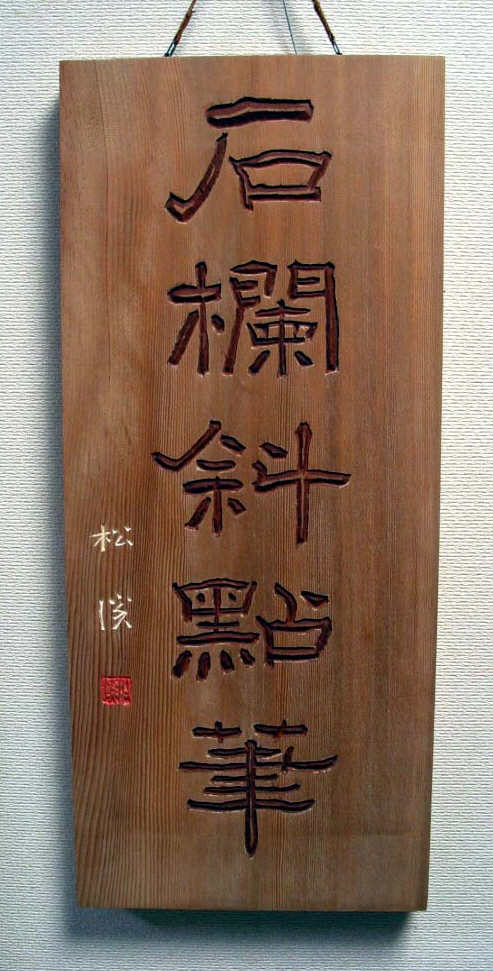 石欄斜點筆
松渓